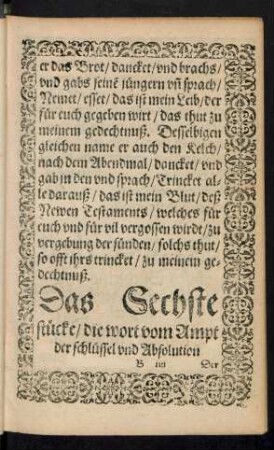 er das Brot/ dancket/ vnd brachs/
vnd gabs seinē jüngern vñ sprach/
Nemet/ esset/ das ist mein Leib/ der
für euch gegeben wirt/ das thut zu
meinem gedechtnuß. Desselbigen
gleichen name er auch den Kelch/
nach dem Abendmal/ dancket/ vnd
gab in den vnd sprach/ Trincket al-
le darauß/ das ist mein Blut/ deß
Newen Testaments/ welches für
euch vnd für vil vergossen wirdt/ zu
vergebung der sünden/ solchs thut/
so offt ihrs trincket/ zu meinem ge-
dechtnuß.
Das Sechste
stücke/ die wort vom Ampt
der schlüssel vnd Absolution
B iiij Der